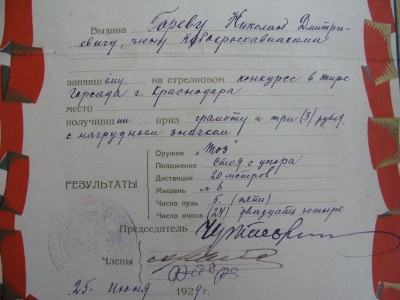 Выдана Гореву Николаю Дмитри-
евичу, члену Автопроссавиахима
занявшему на стрелковом конкурсе в тире
Горсада г. Краснодара
место
получивший приз грамоту и три (3) рубля
с нагрудным значком
РЕЗУЛЬТАТЫ
Оружие "Тоз"
Положение Стоя с упора
Дистанция 20 метров
Мишень № 6
Число пуль 5 (пяти)
Число очков (24) двадцать четыре
Председатель
Члены
25 Июня 1929 г.